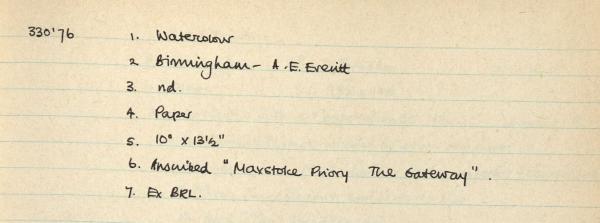 330'76 1. Watercolour
2 Birmingham - A.E. Everitt
3. nd.
4. Paper
5. 10" x 13½"
6. Inscribed "Maxstoke Priory The Gateway".
7. Ex BRL.